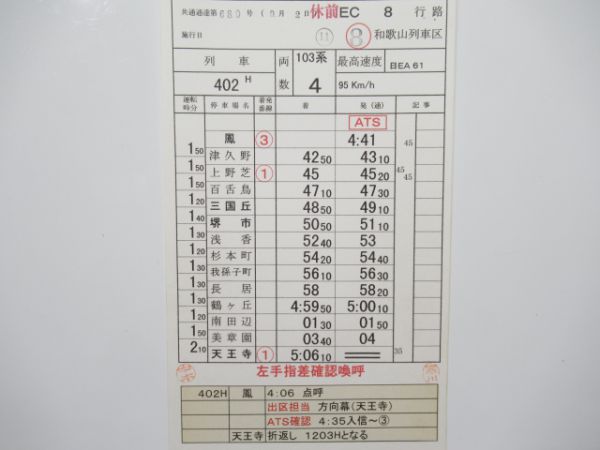 共通通達第680号 (9月2日 休前EC 8 行路
施行日 ⑪ ⑧ 和歌山列車区
列車 両数 103系 最高速度 日EA61
402H 4 95 Km/h
運転時分 停車場名 着発番線 着 発(通) 記事
ATS
鳳 ③ 4:41
1 50 津久野 42 50 43 10 45
1 50 上野芝 ① 45 45 20 45 45
1 50 百舌鳥 47 10 47 30
1 20 三国丘 48 50 49 10
1 40 堺市 50 50 51 10
1 30 浅香 52 40 53
1 20 杉本町 54 20 54 40
1 30 我孫子町 56 10 56 30
1 30 長居 58 58 20
1 30 鶴ヶ丘 4:59 50 5:00 10
1 20 南田辺 01 30 01 50
1 50 美章園 03 40 04
2 10 天王寺 ① 5:06 10 35
左手指差確認喚呼
402H 鳳 4:06 点呼
出区担当 方向幕(天王寺)
ATS確認 4:35入信~③
天王寺 折返し 1203Hとなる